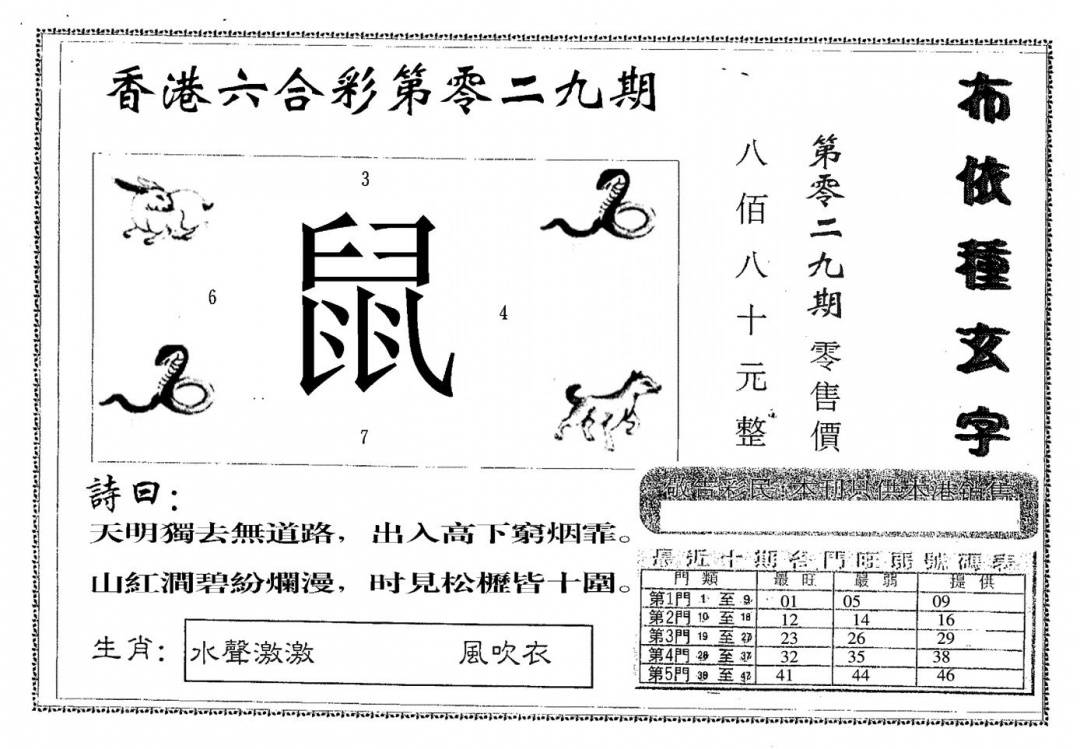 香港六合彩第零二九期
布依種玄字
第零二九期零售價
八佰八十元整
3
鼠
6
4
7
詩曰：
天明獨去無道路，出入高下窮烟霏。
山紅澗碧紛爛漫，时見松櫪皆十圍。
生肖：水聲激激 風吹衣
敬告彩民：本刊只供本港銷售
最近十期各門旺弱號碼表
門類 最旺 最弱 提供
第1門 1 至 9 01 05 09
第2門 10 至 18 12 14 16
第3門 19 至 27 23 26 29
第4門 28 至 37 32 35 38
第5門 38 至 47 41 44 46